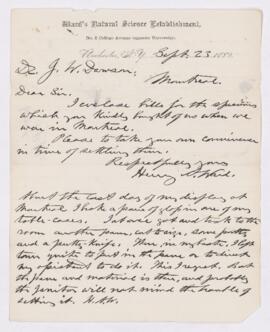 Ward's Natural Science Establishment,
No. 2 College Avenue opposite University,
Rochester, N.Y. Sept. 23. 188
Dr. J. W. Dawson,
Montreal.
Dear Sir.
I enclose bills for the specimens
which you kindly bought of us when we
were in Montreal.
Please to take your own convenience
in time of settling them.
Respectfully yours
Henry A. Ward.
About the last day of my display at
Montreal I broke a pane of glass in one of my
table-cases. I at once got and took to the
room another pane, cut size, some putty,
and a putty knife. Then, in my haste, I left
town quite to put in the pane or to direct
my assistant to do it. This I regret. But
the pane and material is there, and probably
the janitor will not mind the trouble of
setting it. H.A.W.